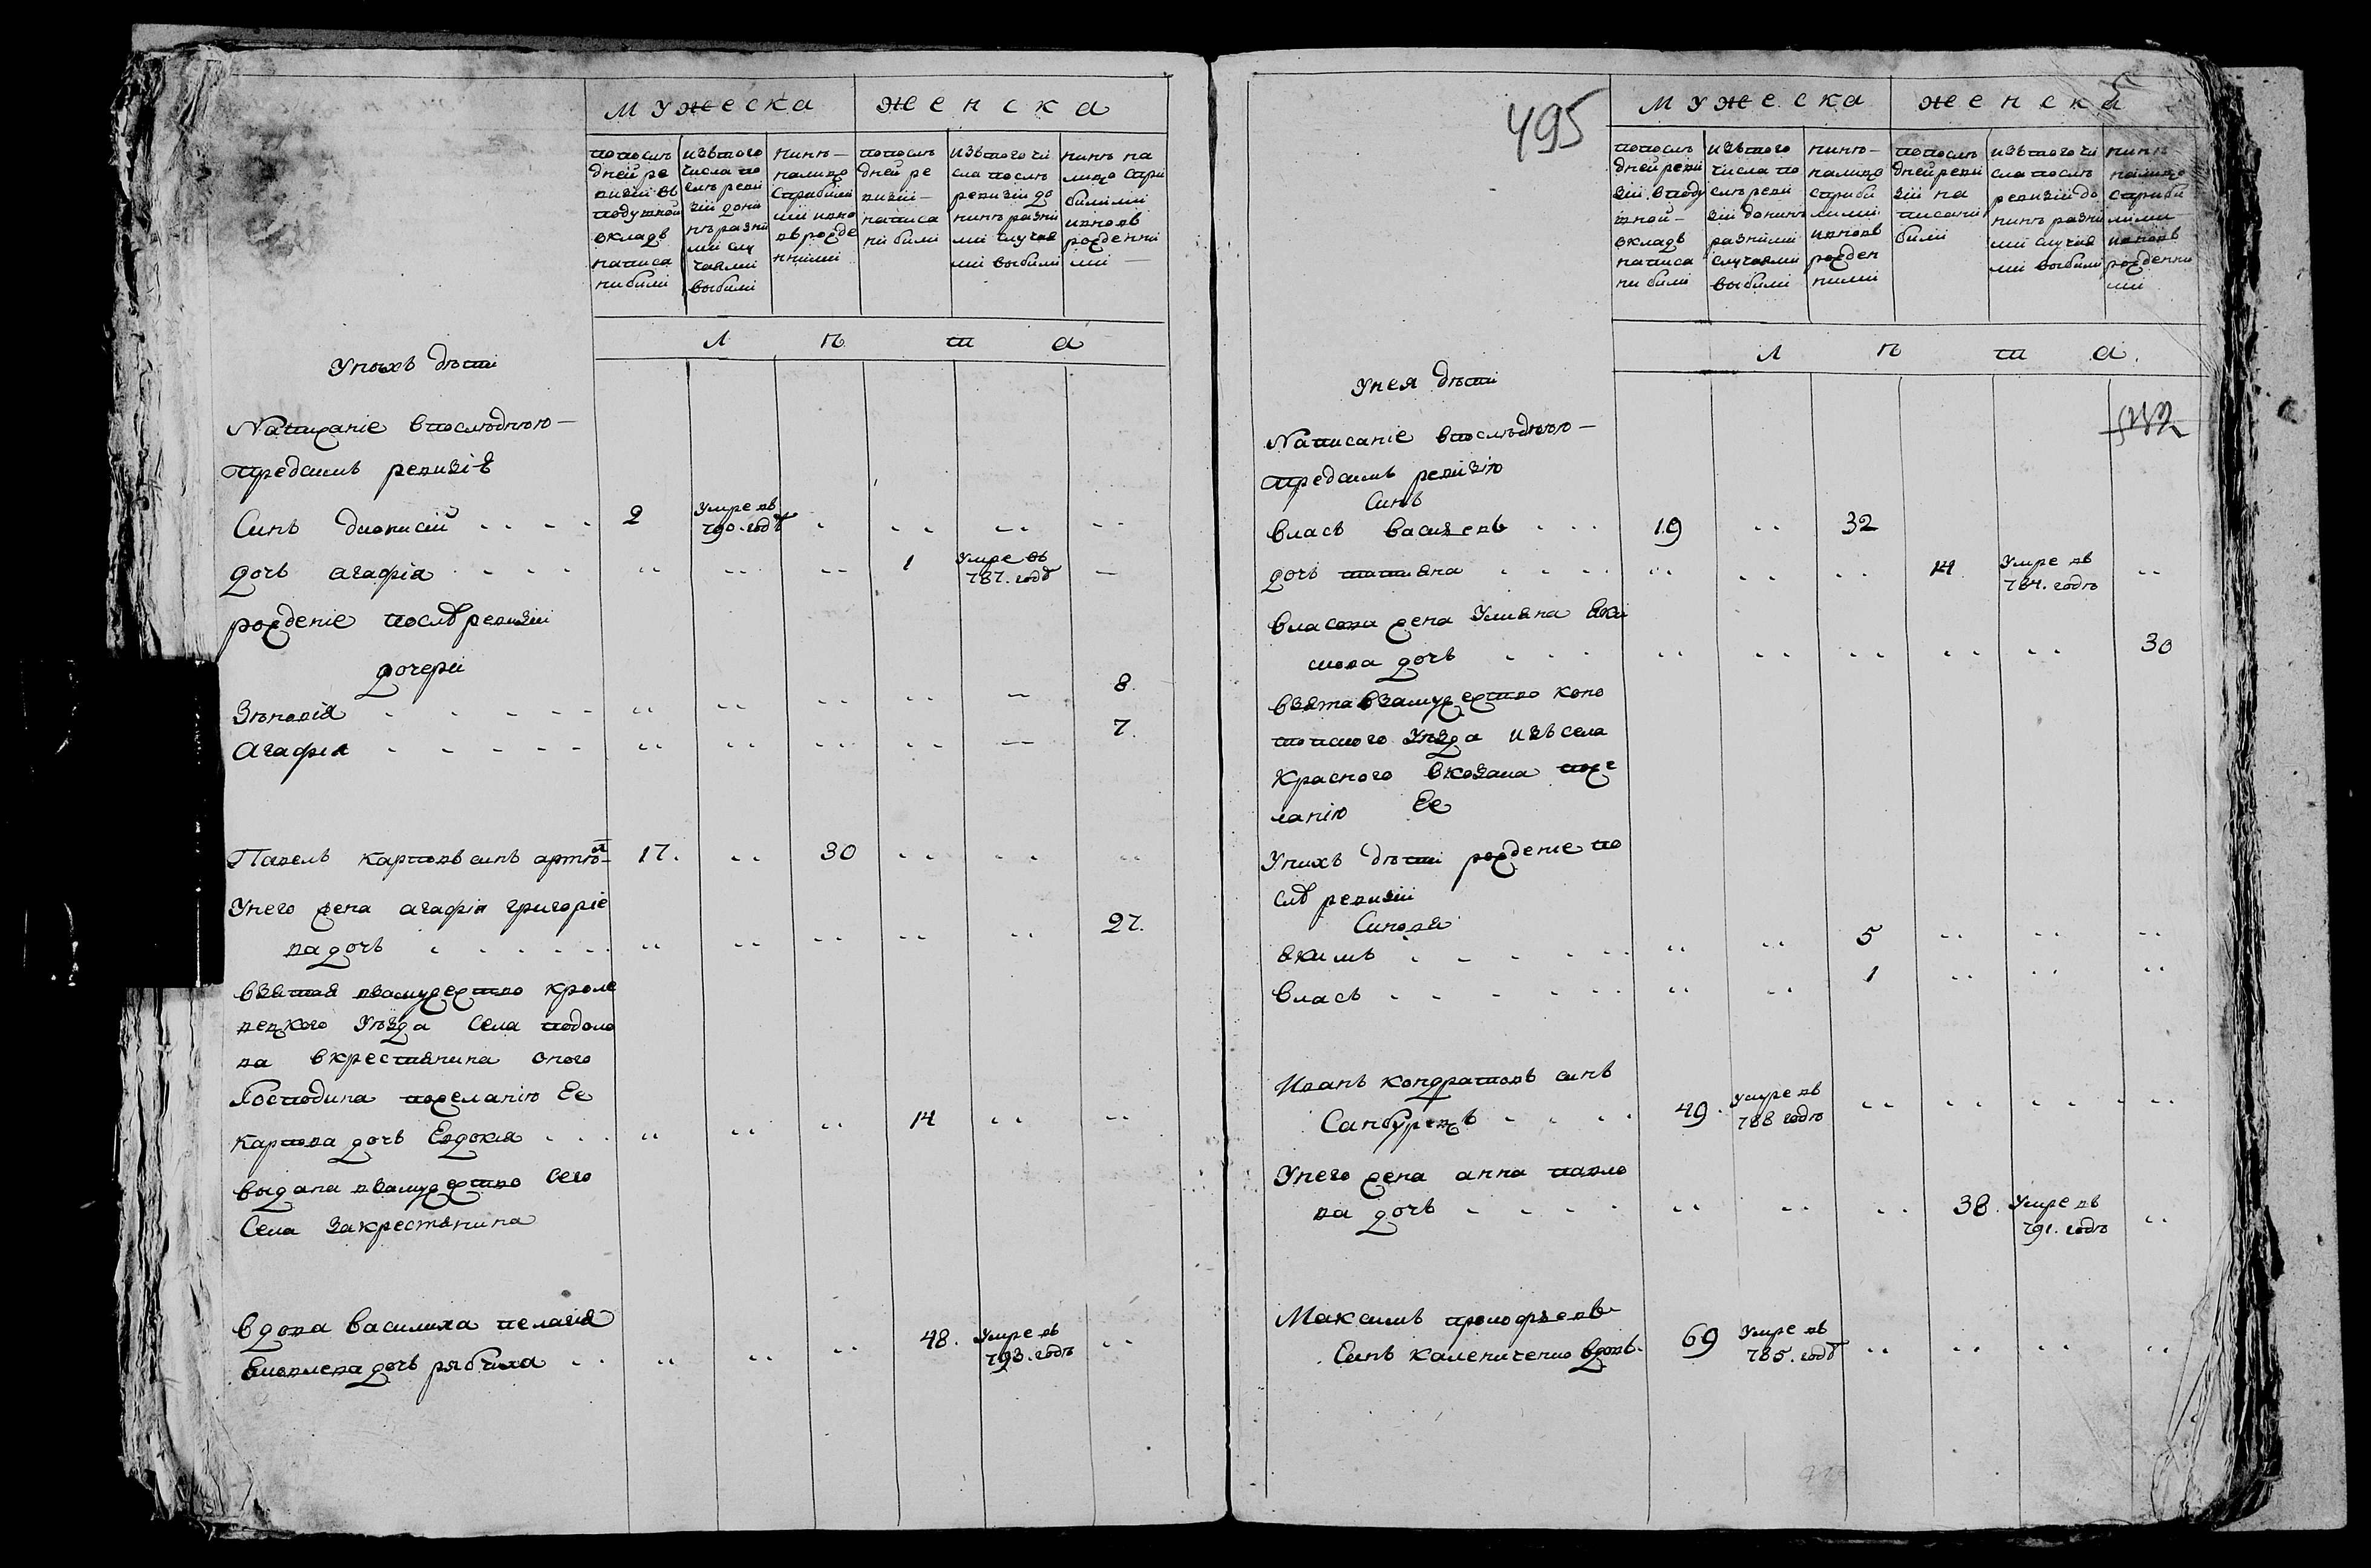 мужеска женска
попослѣ
дней ре
визіи въ
подушной
окладъ
написа
ни били
изътого
числа по
слѣ реви
зіи дони
нѣ разни
ми слу
чаями
выбили
нинѣ
налицо
сприбили
ми иново
рожде
нними
попослѣ
дней ре
визіи
написа
ни били
изътого чи
сла послѣ
ревизіи до
нинѣ разни
ми случая
ми выбили
нинѣ на
лицо спри
билими
иновъ
рожденни
ми
л ѣ т а
Уныхъ дѣти
Написаніе впослѣднюю
предсимъ ревизіѣ
Синъ дионисій 2 Умре въ 790. годѣ
дочь агафія 1 Умре въ 787. годѣ
рожденіе послѣ ревизіи
дочери
Зѣновія 8
Агафія 7.
Павелъ карповъ синъ 17. 30
Унего жена агафія григоріе
ва дочь 27.
взятая взамужество кроле
вецкого Уѣзда села подоло
ва вкрестянина оного
Господина пожеланію Ее
карпова дочь Евдокія 14
выдана взамужество сего
села закрестянина
вдова василиха пелагія
дочь рябчиха 48. Умре въ 793. годѣ
495
5
мужеска женска
попослѣ
дней реви
зіи вподу
шной
окладъ
написа
ни били
изътого
числа по
слѣ реви
зіи донинѣ
разними
случаями
выбили
нинѣ
налицо
сприби
лими
иновъ
рожден
ними
попослѣ
дней реви
зіи на
писани
били
изътого чи
сла послѣ
ревизіи до
нинѣ разни
ми случая
ми выбили
нинѣ
налицо
сприби
лими
иновъ
рожденни
ми
л ѣ т а.
Унея дѣти
Написаніе впослѣднюю
предсимъ ревизію
Синъ
власъ васиłевъ 19 32
дочь татияна 14 Умре въ 784. годѣ
власова жена Улияна Яки
мова дочь 30
взята взамужество коно
топского Уѣзда изъ села
красного вкозака поже
ланію Ее
Унихъ дѣти рожденіе по
слѣ ревизіи
Синовя
якимъ 5
власъ 1
Иванъ кондратовъ синъ
Санбурецъ 49. Умре въ 788 годѣ
Унего жена анна павло
ва дочь 38. Умре въ 791. годѣ
Максимъ прокофъевъ
Синъ калениченко вдовъ 69 Умре въ 785. годѣ